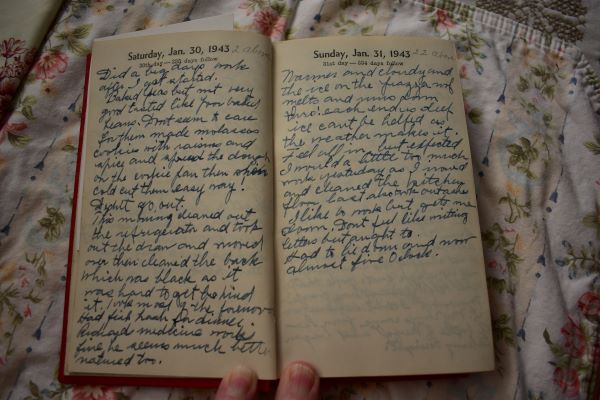 Saturday, Jan. 30, 1943 2 above
30th day—335 days follow
Did a big days work
after I got started.
Baked peas but not very
good tasted like poor baked
beans. Dont seem to care
for them made molasses
cookies with raisins and
spice and spread the dough
on the cookie pan then when
cold cut them easy way.
Didn't go out.
This morning cleaned out
the refrigerator and took
out the drawer and moved
over then cleaned the back
which was black as it
was hard to get behind
it. Took most of the forenoon
Had fish hash for dinner.
medicine works
fine he seems much better
natured too.
Sunday, Jan. 31, 1943 22 above
31st day—334 days follow
Warmer and cloudy and
the ice on the
melts and runs down
thro' each end is deep
ice cant be helped as
the weather makes it.
Feel all in but expected
I would a little too much
work yesterday as I moved
and cleaned the kitchen
floor back also work outside
I like to work but gets me
down. Dont feel like writing
letters but ought to.
Had to lie down and now
almost five O'clock.